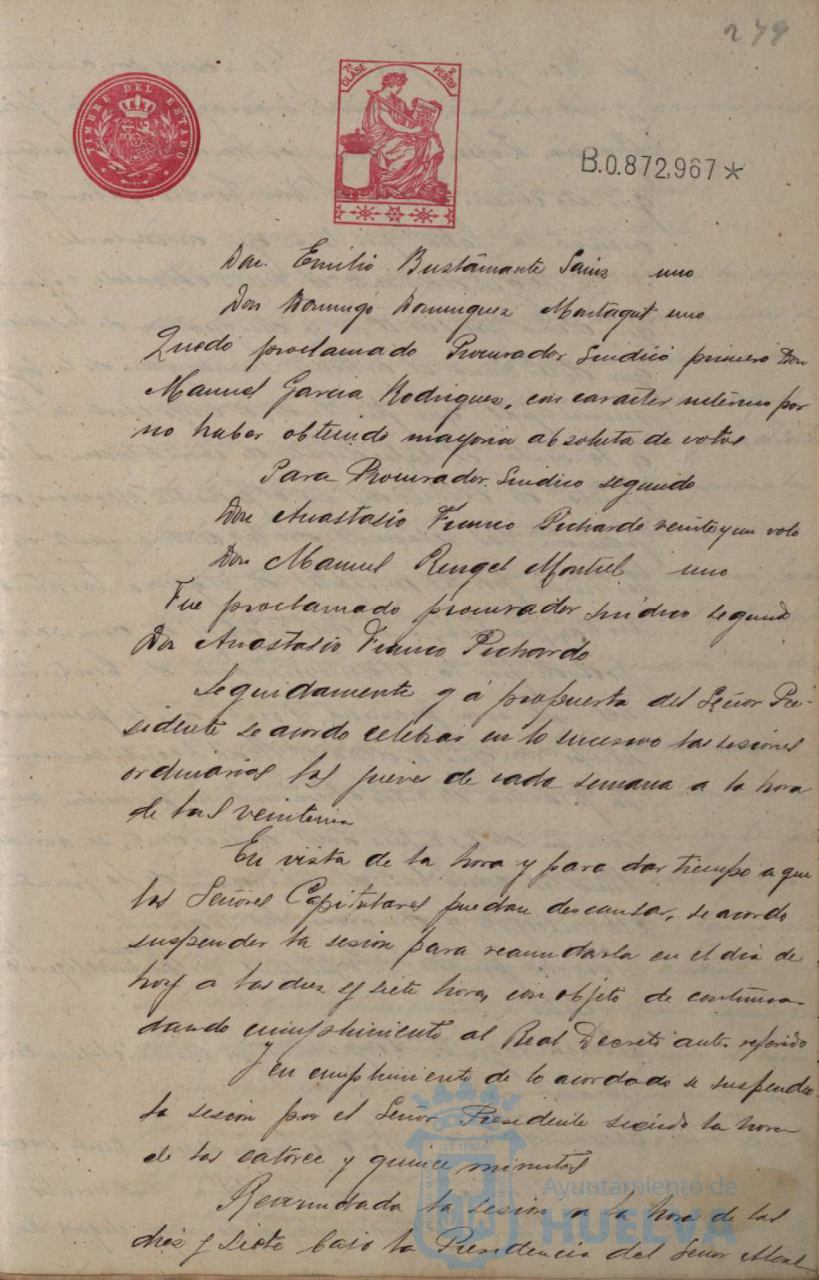 279
TIMBRE DEL ESTADO
7ª CLASE
2 PESTAS
B.0.872,967*
Don Emilio Bustamante Sainz uno
Don Domingo Dominguez Montagut uno
Quedó proclamado Procurador Sindico primero Don
Manuel Garcia Rodriguez, con caracter interino por
no haber obtenido mayoria absoluta de votos
Para Procurador Sindico segundo
Don Anastasio Franco Pichardo veinte y un voto
Don Manuel Rengel Montiel uno
Fue proclamado procurador sindico segundo
Don Anastasio Franco Pichardo
Seguidamente y á propuesta del Señor Pre-
sidente se acordo celebrar en lo sucesivo las sesiones
ordinarias los jueves de cada semana a la hora
de las veintiuna
En vista de la hora y para dar tiempo a que
los Señores Capitulares puedan descansar, se acordo
suspender la sesión para reanudarla en el día de
hoy a las diez y siete horas, con objeto de continuar
dando cumplimiento al Real Decreto antes referido
Y en cumplimiento de lo acordado se suspendio
la sesión por el Señor Presidente siendo la hora
de las catorce y quince minutos
Reanudada la sesión a la hora de las
diez y siete bajo la Presidencia del Señor Alcal
Ayuntamiento de
HUELVA